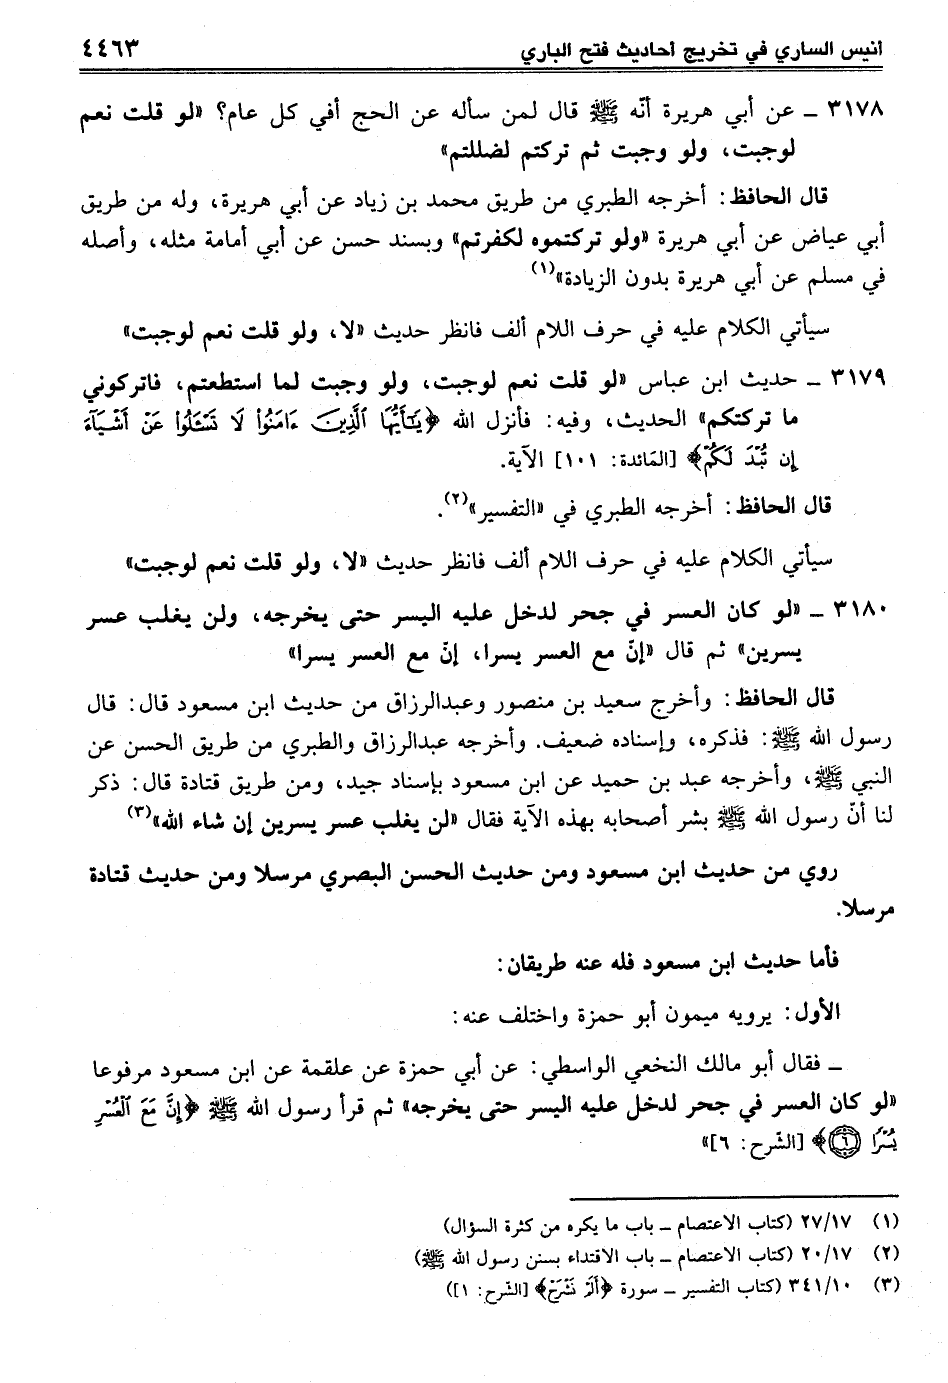 أنيس الساري في تخريج أحاديث فتح الباري ٤٤٦٣
٣١٧٨ ـ عن أبي هريرة أنّه ﷺ قال لمن سأله عن الحج أفي كل عام؟ «لو قلت نعم
لوجبت، ولو وجبت ثم تركتم لضللتم»
قال الحافظ: أخرجه الطبري من طريق محمد بن زياد عن أبي هريرة، وله من طريق
أبي عياض عن أبي هريرة «ولو تركتموه لكفرتم» وبسند حسن عن أبي أمامة مثله، وأصله
في مسلم عن أبي هريرة بدون الزيادة»(١)
سيأتي الكلام عليه في حرف اللام ألف فانظر حديث «لا، ولو قلت نعم لوجبت»
٣١٧٩ ـ حديث ابن عباس «لو قلت نعم لوجبت، ولو وجبت لما استطعتم، فاتركوني
ما تركتكم» الحديث، وفيه: فأنزل الله ﴿يَٰٓأَيُّهَا ٱلَّذِينَ ءَامَنُوا۟ لَا تَسْـَٔلُوا۟ عَنْ أَشْيَآءَ
إِن تُبْدَ لَكُمْ﴾ [المَائدة: ١٠١] الآية.
قال الحافظ: أخرجه الطبري في «التفسير»(٢).
سيأتي الكلام عليه في حرف اللام ألف فانظر حديث «لا، ولو قلت نعم لوجبت»
٣١٨٠ ـ «لو كان العسر في جحر لدخل عليه اليسر حتى يخرجه، ولن يغلب عسر
يسرين» ثم قال «إنّ مع العسر يسرا، إنّ مع العسر يسرا»
قال الحافظ: وأخرج سعيد بن منصور وعبدالرزاق من حديث ابن مسعود قال: قال
رسول الله ﷺ: فذكره، وإسناده ضعيف. وأخرجه عبدالرزاق والطبري من طريق الحسن عن
النبي ﷺ، وأخرجه عبد بن حميد عن ابن مسعود بإسناد جيد، ومن طريق قتادة قال: ذكر
لنا أنّ رسول الله ﷺ بشر أصحابه بهذه الآية فقال «لن يغلب عسر يسرين إن شاء الله»(٣)
روي من حديث ابن مسعود ومن حديث الحسن البصري مرسلا ومن حديث قتادة
مرسلا.
فأما حديث ابن مسعود فله عنه طريقان:
الأول: يرويه ميمون أبو حمزة واختلف عنه:
ـ فقال أبو مالك النخعي الواسطي: عن أبي حمزة عن علقمة عن ابن مسعود مرفوعا
«لو كان العسر في جحر لدخل عليه اليسر حتى يخرجه» ثم قرأ رسول الله ﷺ ﴿إِنَّ مَعَ ٱلْعُسْرِ
يُسْرًا ٦﴾ [الشّرح: ٦]»
(١) ٢٧/١٧ (كتاب الاعتصام ـ باب ما يكره من كثرة السؤال)
(٢) ٢٠/١٧ (كتاب الاعتصام ـ باب الاقتداء بسنن رسول الله ﷺ)
(٣) ٣٤١/١٠ (كتاب التفسير ـ سورة ﴿أَلَمْ نَشْرَحْ﴾ [الشّرح: ١])